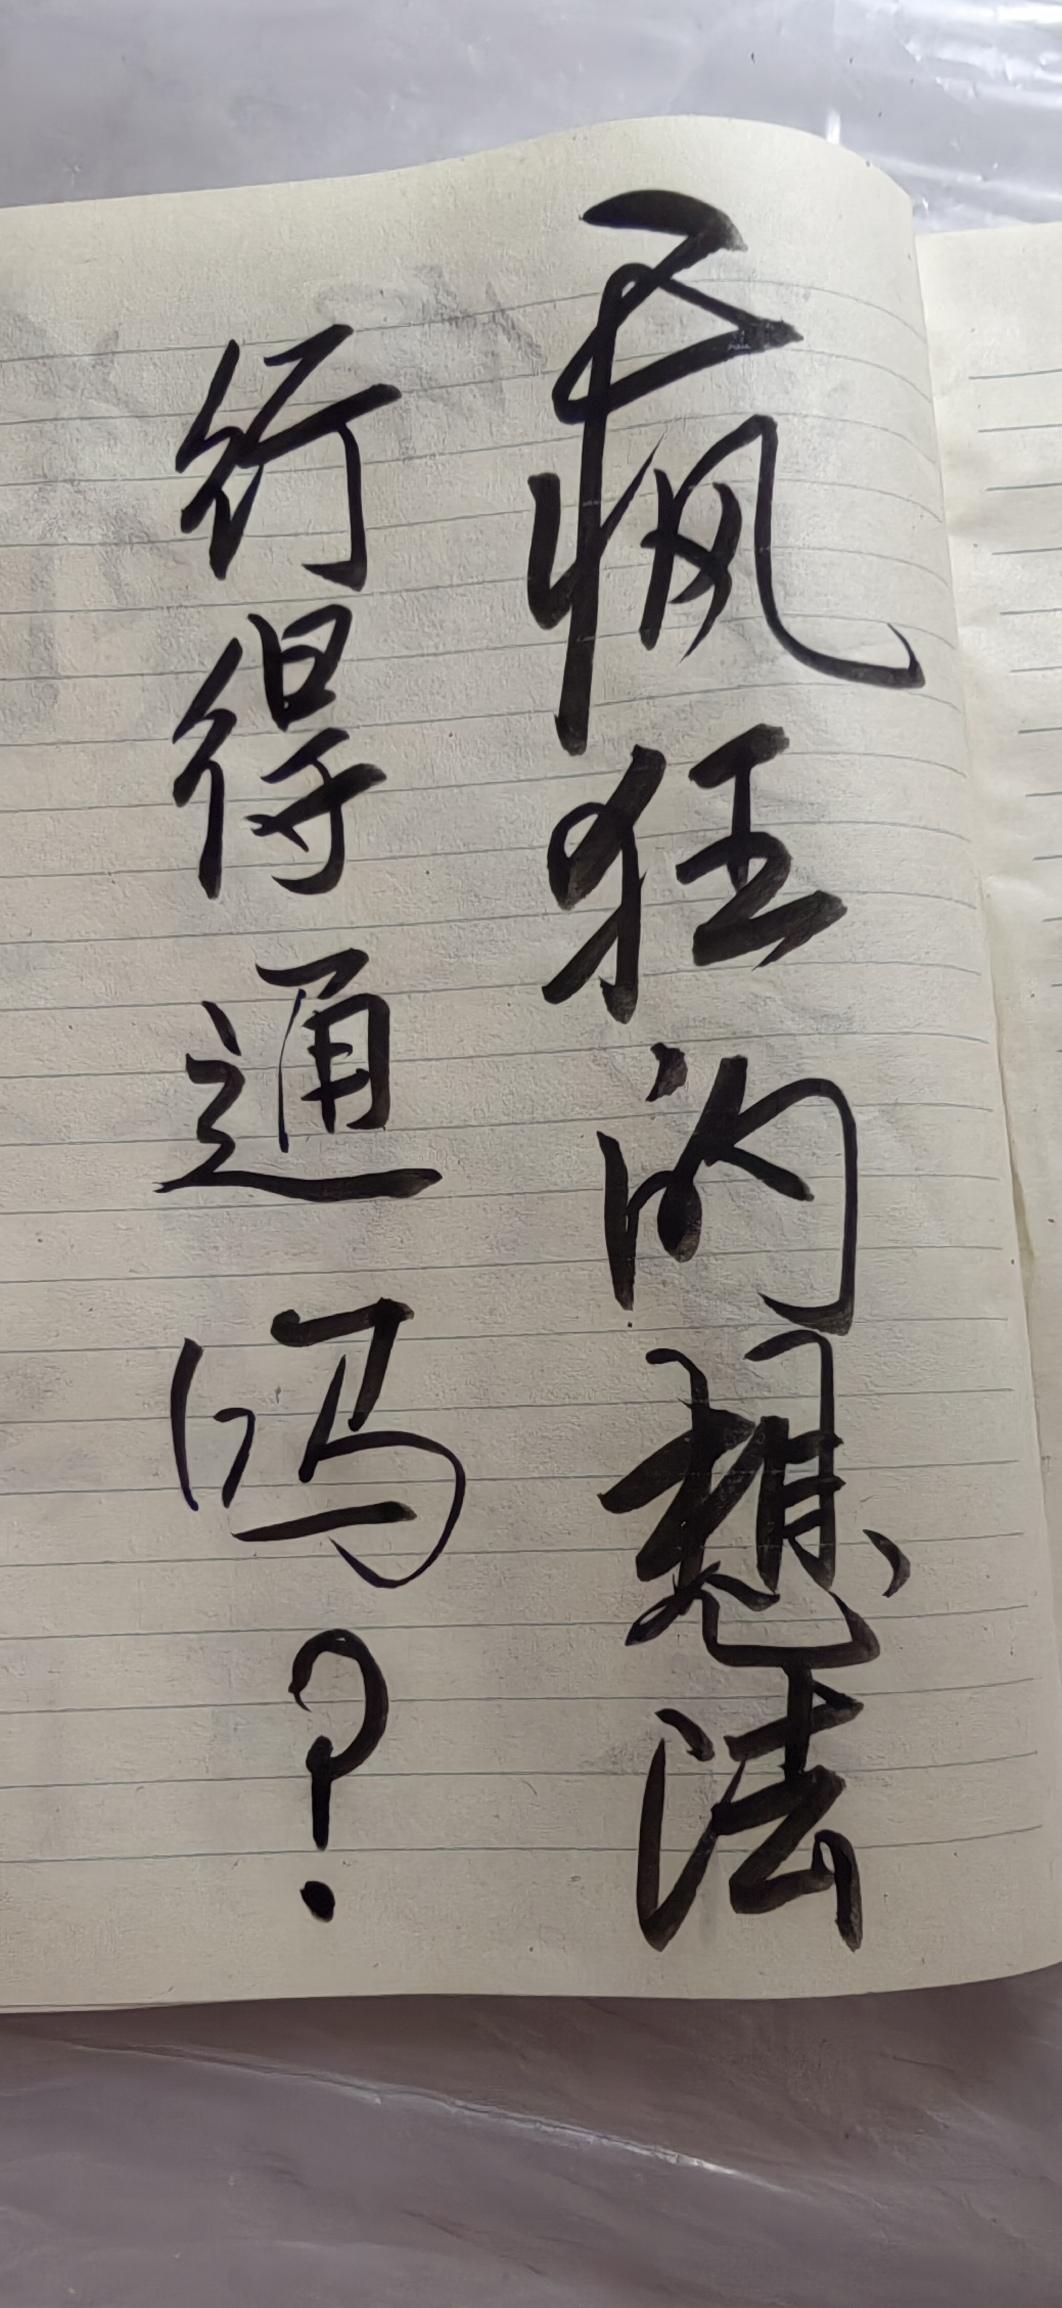 疯狂的想法
行得通吗？